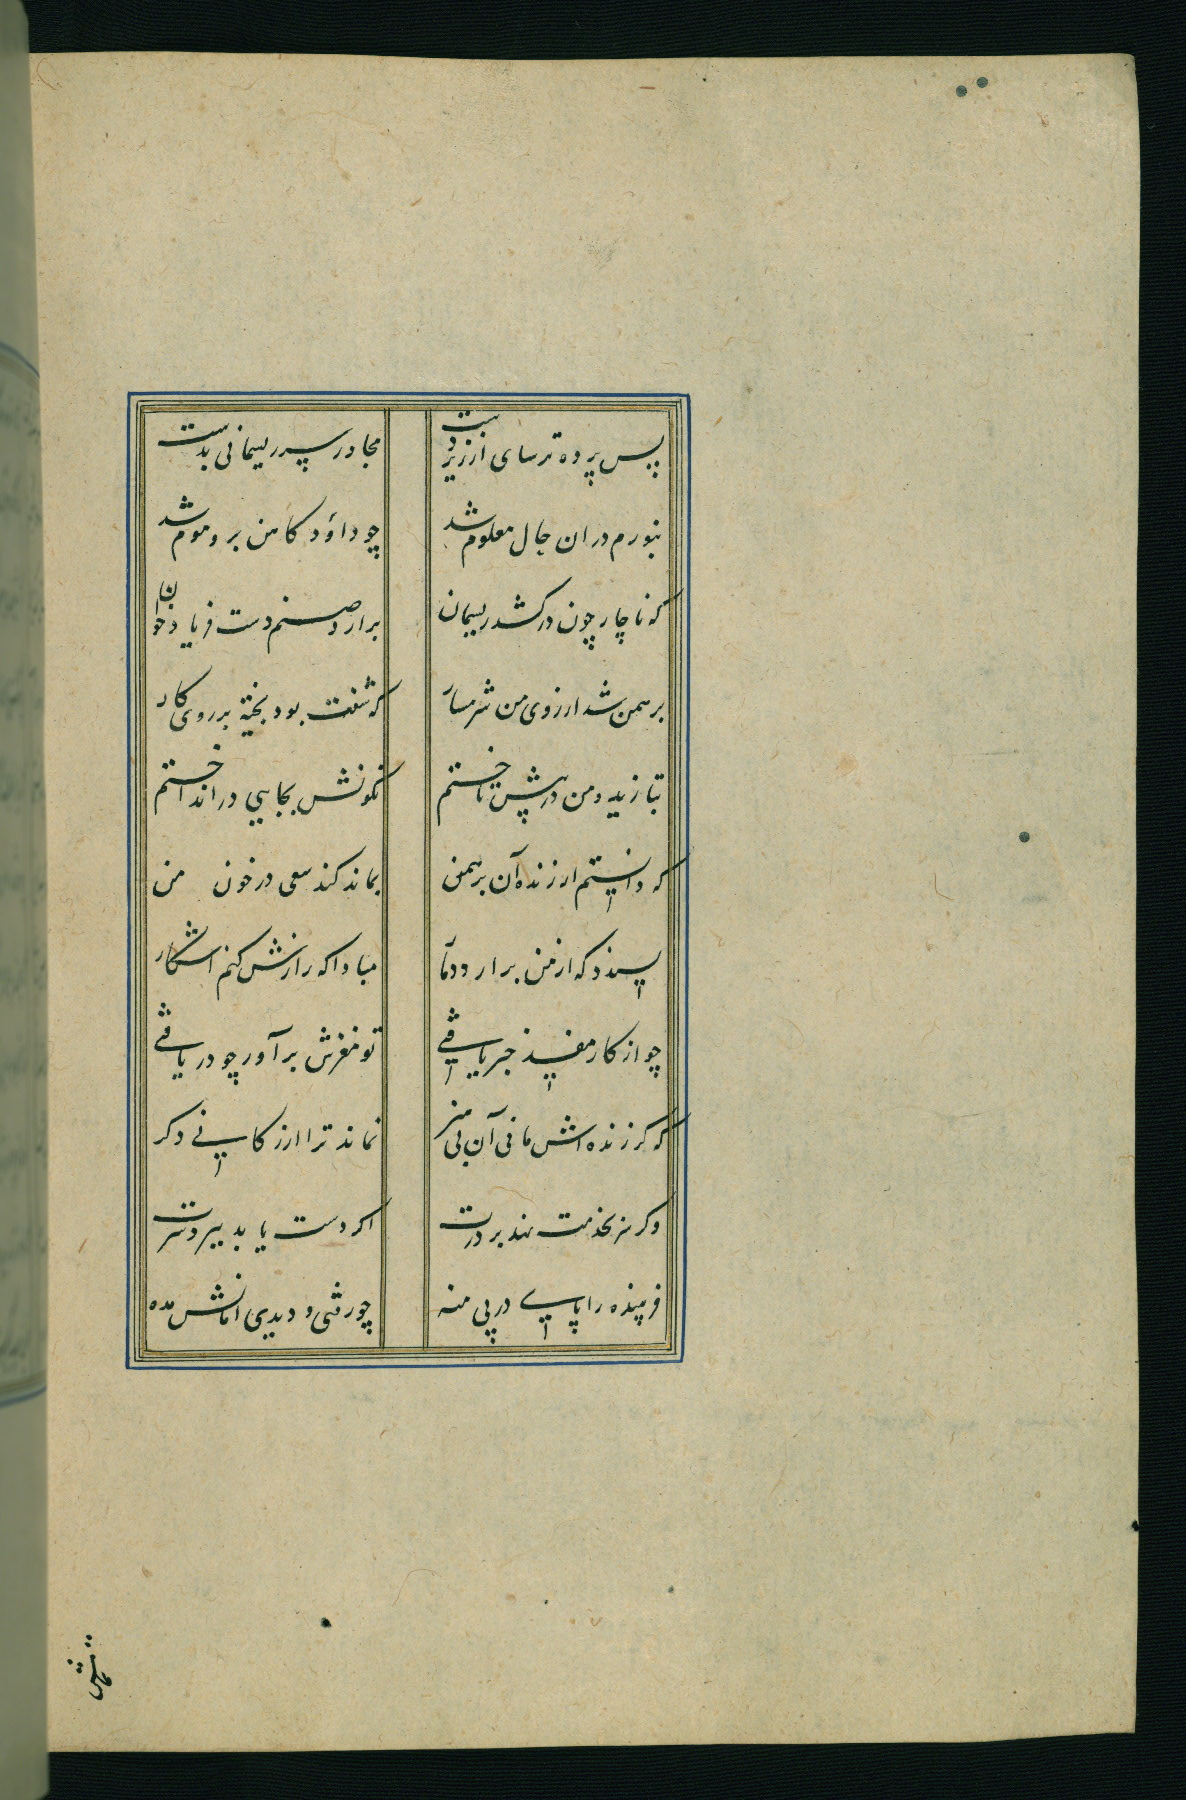 پس پرده ترسای ازرزپرست مجاور سر ریسمانی بدست
بنورم دران حال معلوم شد چو داؤد کاهن برو موم شد
که ناچار چون درکشد ریسمان برارد صنم دست فریاد خوان
برهمن شد ازروی من شرمسار که شنعت بود بخیه برروی کار
بتازید و من درپیش تاختم نکونش بچاهی درانداختم
که دانستم ارزنده آن برهمن بماند کند سعی درخون من
پسندد که ازمن برارد دمار مبادا که رازش کنم اشکار
چو ازکار مفسد خبر یافتی تو مغزش برآور چو دریافتی
که کر زنده اش مانی آن بی هنر نماند ترا ارزندکانی دکر
وکر سر بخدمت نهد بردرت اکر دست یابد ببرد سرت
فریبنده را پای درپی منه چو رفتی و دیدی امانش مده